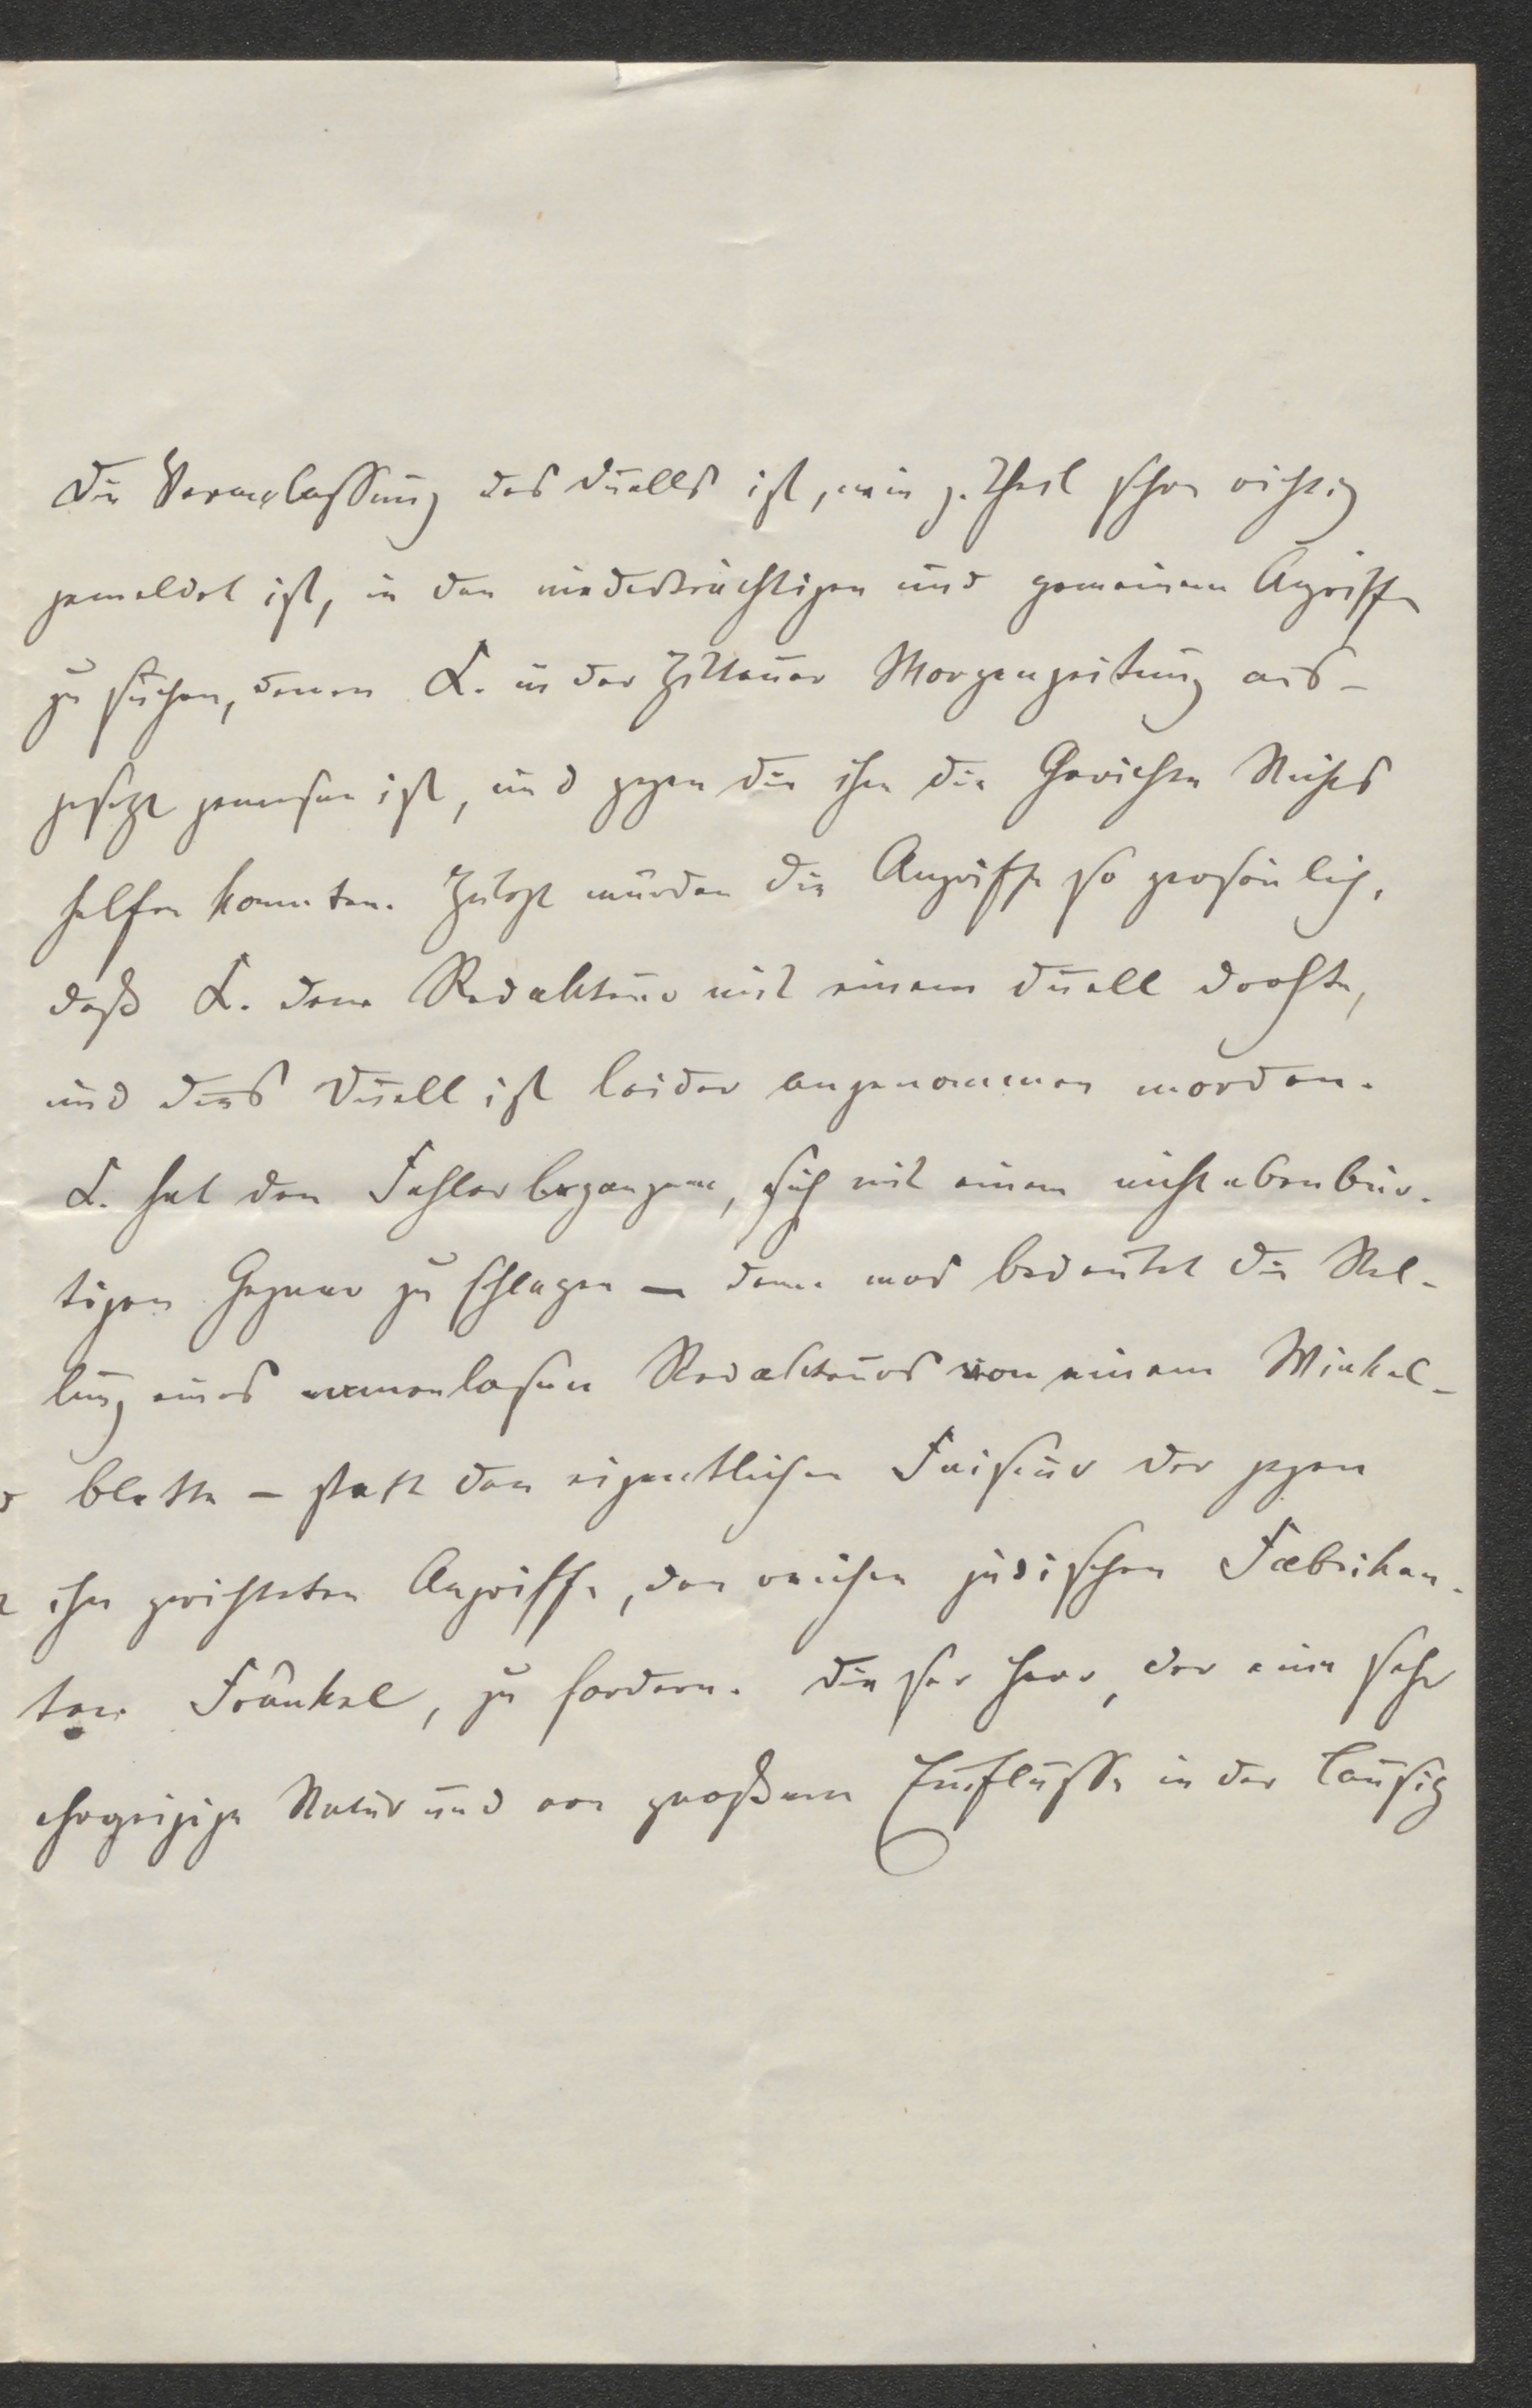 Die Veranlassung des Duells ist, wie z. Theil schon richtig
gemeldet ist, in den niederträchtigen und gemeinen Angriffen
zu suchen, denen L. in der Zittauer Morgenzeitung aus-
gesetzt gewesen ist, und gegen die ihm die Gerichte Nichts
helfen konnten. Zuletzt wurden die Angriffe so persönlich,
daß L. dem Redakteur mit einem Duell drohte,
und dies Duell ist leider angenommen worden.
L. hat den Fehler begangen, sich mit einem nicht ebenbür-
tigen Gegner zu schlagen – denn was bedeutet die Stel-
lung eines namenlosen Redakteurs von einem Winkel-
blatte – statt den eigentlichen Faiseur der gegen
ihn gerichteten Angriffe, den reichen jüdischen Fabrikan-
ten Fränkel, zu fordern. Dieser Herr, der eine sehr
ehrgeizige Natur und von großem Einflusse in der Lausitz